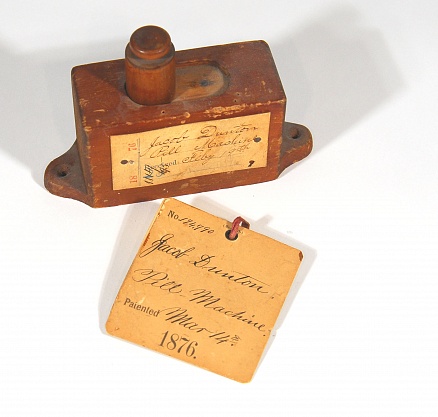 18 76
Jacob Dunton
Pill Machine
Feby
No. 174,790
Jacob Dunton.
Pill Machine.
Patented Mar 14th
1876.